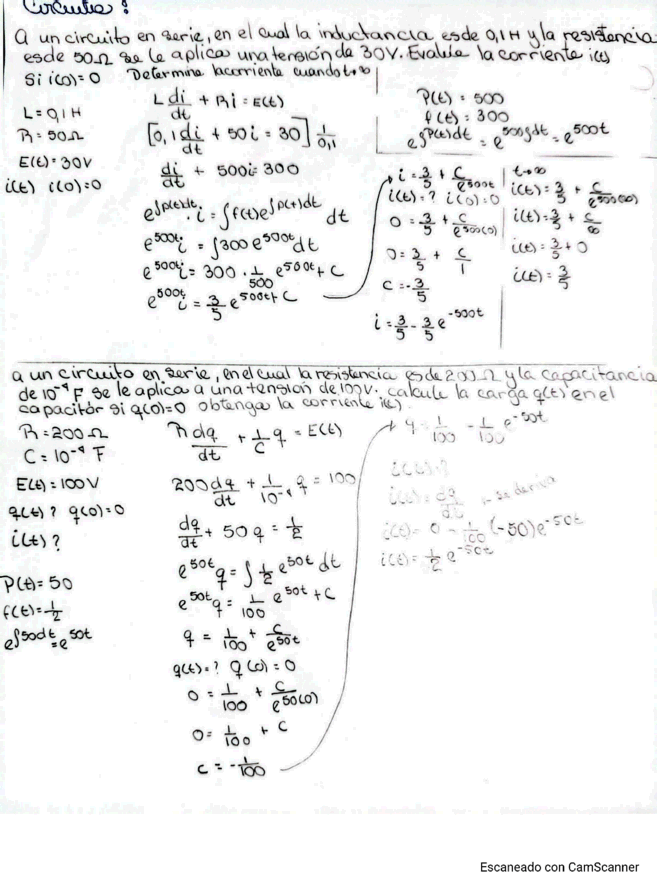 Circuitos :
a un circuito en serie, en el cual la inductancia es de 0,1 H y la resistencia
es de 50Ω se le aplica una tensión de 30V. Evalúe la corriente i(t)
Si i(0)=0 Determine la corriente cuando t→∞
L=0,1 H
R=50Ω
E(t)=30V
i(t) i(0)=0
L di/dt + Ri = E(t)
[0,1 di/dt + 50i = 30] 1/0,1
di/dt + 500i=300
e^∫p(t)dt . i = ∫f(t)e^∫p(t)dt dt
e^500t i = ∫300 e^500t dt
e^500t i = 300 . 1/500 e^500t + C
e^500t i = 3/5 e^500t + C
P(t) = 500
f(t) = 300
e^∫P(t)dt = e^500∫dt = e^500t
i = 3/5 + C/e^500t
i(t)=? i(0)=0
0 = 3/5 + C/e^500(0)
0 = 3/5 + C/1
C = -3/5
i = 3/5 - 3/5 e^-500t
t→∞
i(t) = 3/5 + C/e^500(∞)
i(t) = 3/5 + C/∞
i(t) = 3/5 + 0
i(t) = 3/5
a un circuito en serie, en el cual la resistencia es de 200Ω y la capacitancia
de 10^-4 F se le aplica a una tensión de 100V. calcule la carga q(t) en el
capacitor si q(0)=0 obtenga la corriente i(t)
R=200Ω
C=10^-4 F
E(t)=100V
q(t)? q(0)=0
i(t)?
P(t)=50
f(t)=1/2
e^∫50dt = e^50t
R dq/dt + 1/C q = E(t)
200 dq/dt + 1/10^-4 q = 100
dq/dt + 50q = 1/2
e^50t q = ∫ 1/2 e^50t dt
e^50t q = 1/100 e^50t + C
q = 1/100 + C/e^50t
q(t)=? q(0)=0
0 = 1/100 + C/e^50(0)
0 = 1/100 + C
C = -1/100
q = 1/100 - 1/100 e^-50t
i(t)?
i(t) = dq/dt → se deriva
i(t) = 0 - 1/100 (-50)e^-50t
i(t) = 1/2 e^-50t
Escaneado con CamScanner